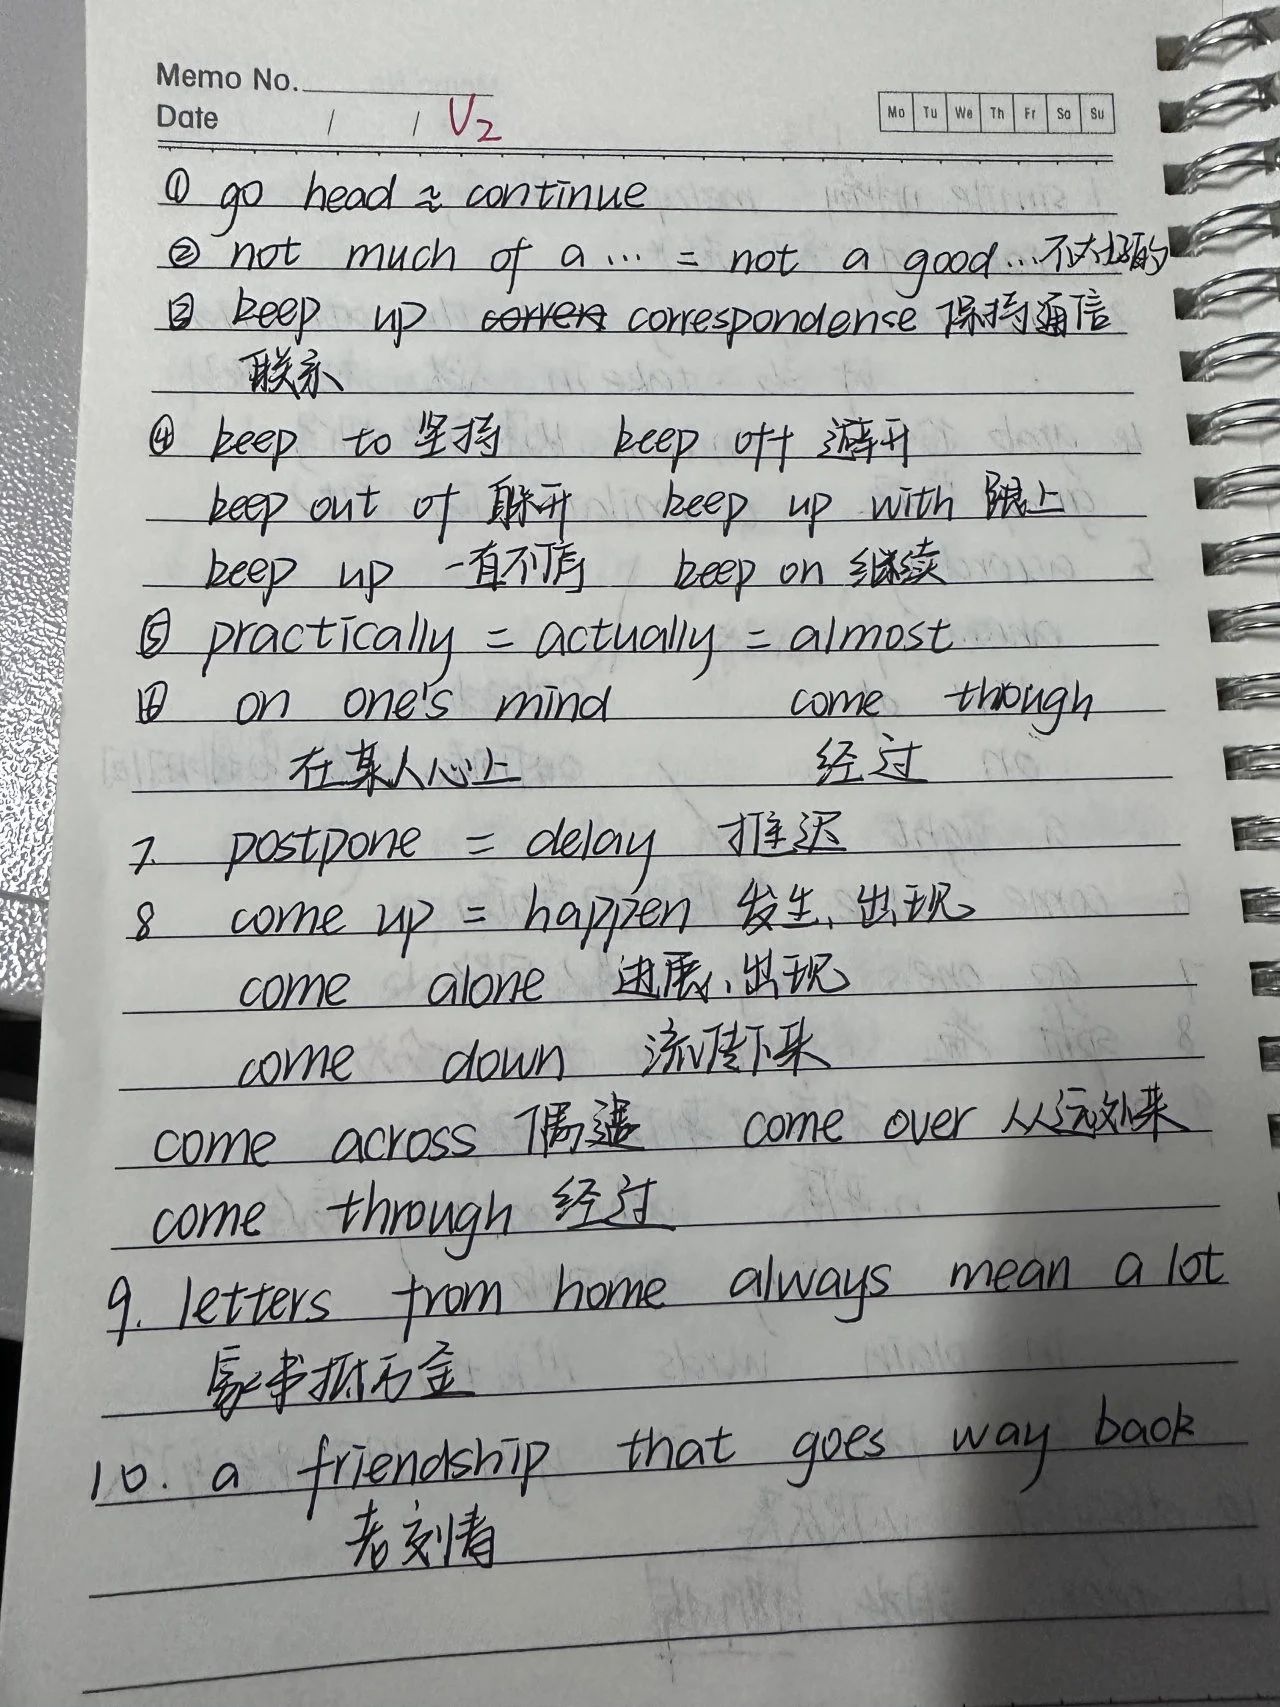 Memo No.
Date / / U2
Mo Tu We Th Fr Sa Su
① go head ≈ continue
② not much of a ... = not a good ... 不大好的
③ keep up correspondense 保持通信
联系
④ keep to 坚持 keep off 避开
keep out of 躲开 keep up with 跟上
keep up 一直不 keep on 继续
⑤ practically = actually = almost
⑥ on one's mind come though
在某人心上 经过
7. postpone = delay 推迟
8 come up = happen 发生、出现
come alone 进展、出现
come down 流传下来
come across 偶遇 come over 从远处来
come through 经过
9. letters from home always mean a lot
家书抵万金
10. a friendship that goes way back
老